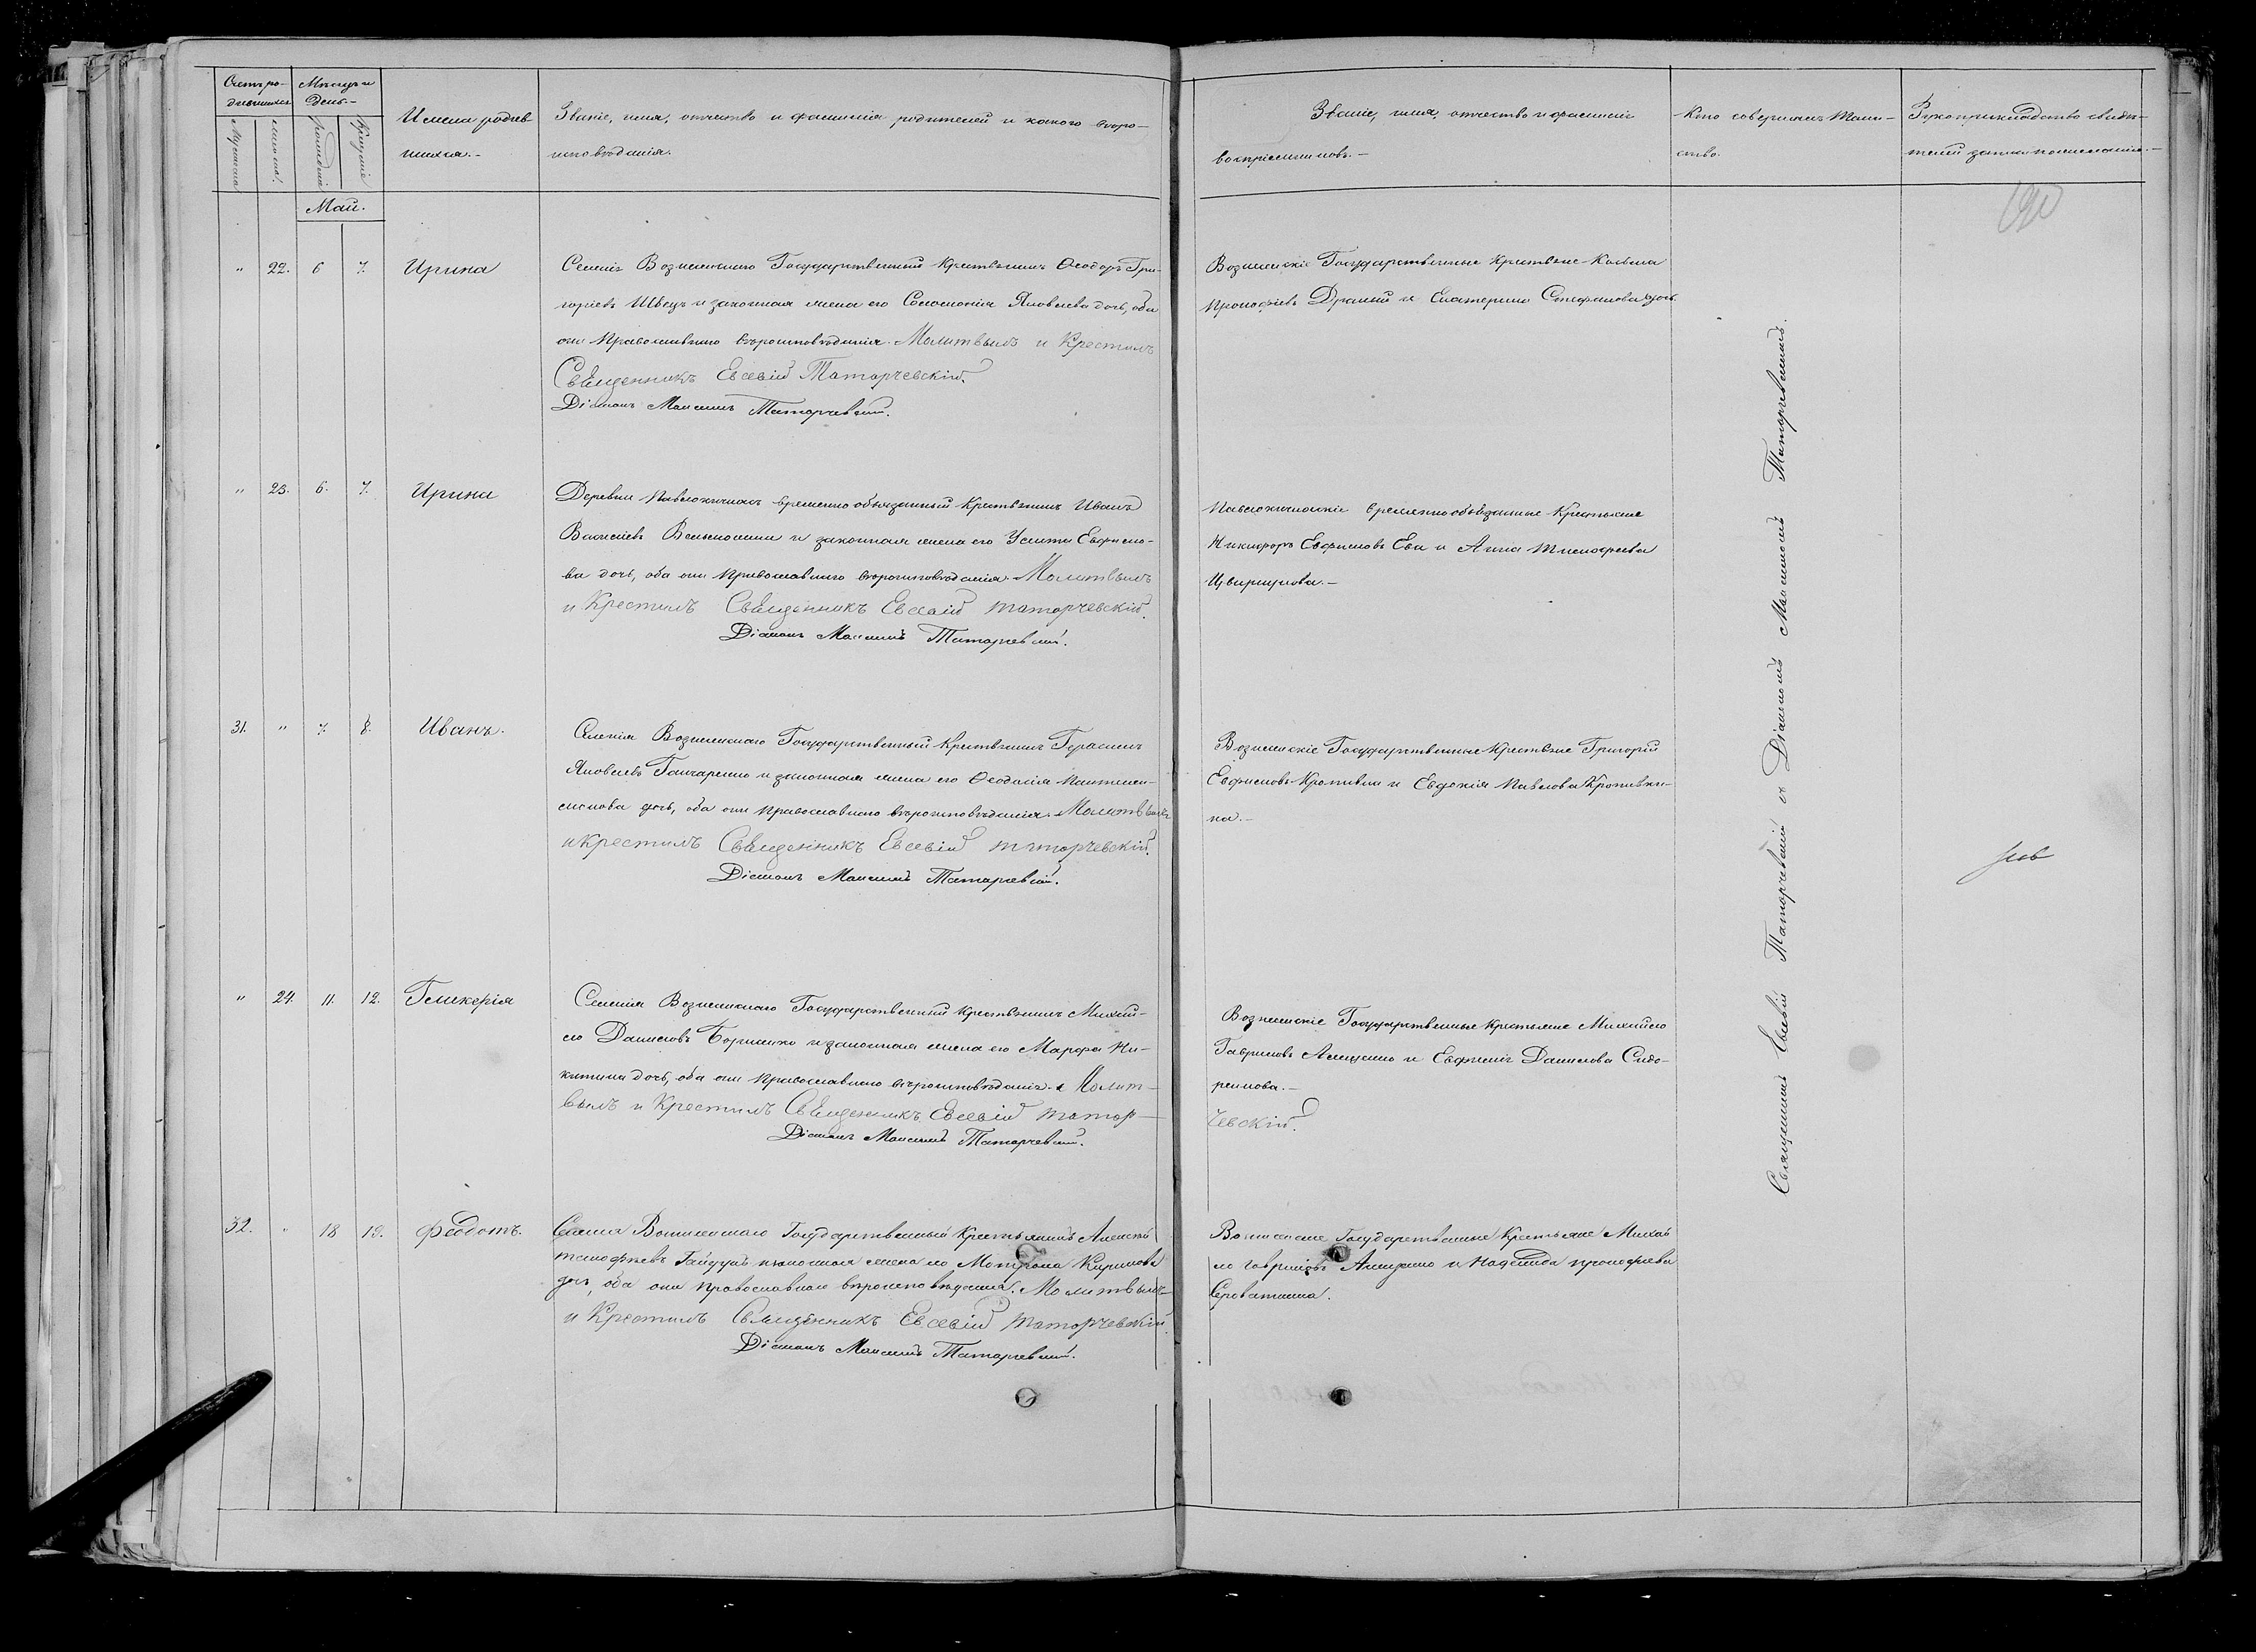 Счетъ ро-
дившихся
Мѣсяцъ и
День.-
Мужеска
женска.
рожденія
Крещенія
Имена родив-
шихся.-
Званіе, имя, отчество и фамилія родителей и какого вѣро-
исповѣданія.
Званіе, имя, отчество и фамилія
воспріемниковъ.-
Кто совершалъ Таин-
ство.
Рукоприкладство свидѣ-
телей записи по желанію.-
Май.
" 22. 6 7. Ирина
Селенія Вознесенскаго Государственный Крестьянинъ Ѳеодоръ Гри-
горіевъ Швецъ и законная жена его Соломонія Яковлева дочь, оба
они Православнаго вѣроисповѣданія. Молитвылъ и Крестилъ
Священникъ Евсевій Таторчевскій.
Діаконъ Максимъ Таторчевскій.
Вознесенскіе Государственные Крестьяне Козьма
Прокофіевъ и Екатерина Стефанова дочь.
" 23. 6. 7. Ирина
Деревни временно обязанный Крестьянинъ Иванъ
Васильевъ и законная жена его Улита Евфимо-
ва дочь, оба они Православнаго вѣроисповѣданія. Молитвылъ
и Крестилъ Священникъ Евсевій таторчевскій.
Діаконъ Максимъ Таторчевскій.
временно обязанные Крестьяне
Никифоръ Евфимовъ и Анна Тимофеева
31. " 7. 8. Иванъ.
Селенія Вознесенскаго Государственный Крестьянинъ Герасимъ
Яковлевъ Гончаренко и законная жена его Ѳеодосія Пантелей-
монова дочь, оба они Православнаго вѣроисповѣданія. Молитвылъ
и крестилъ Священникъ Евсевій таторчевскій.
Діаконъ Максимъ Таторчевскій.
Вознесенскіе Государственные Крестьяне Григорій
Евфимовъ Кропивка и Евдокія Павлова Кропивки-
на.-
" 24. 11. 12. Гликерія
Селенія Вознесенскаго Государственный Крестьянинъ Михай-
ло Даниловъ и законная жена его Марфа Ни-
китина дочь, оба они Православнаго вѣроисповѣданія. Молит-
вылъ и Крестилъ Священникъ Евсевій татор-
Діаконъ Максимъ Таторчевскій.
Вознесенскіе Государственные Крестьяне Михайло
Гавриловъ и Евфимія Данилова Сидо-
ренкова.-
чевскій.
32. " 18 19. Феодотъ.
Селенія Вознесенскаго Государственный Крестьянинъ Алексѣй
тимофѣевъ Гайдукъ и законная жена его Матрона Кирилова
дочь, оба они православнаго вѣроисповѣданія. Молитвылъ
и Крестилъ Священникъ Евсевій таторчевскій
Діаконъ Максимъ Таторчевскій.
Вознесенскіе Государственные Крестьяне Михай-
ло Гавриловъ и Надежда прокофіева
Священникъ Евсевій Таторчевскій и Діаконъ Максимъ Таторчевскій.